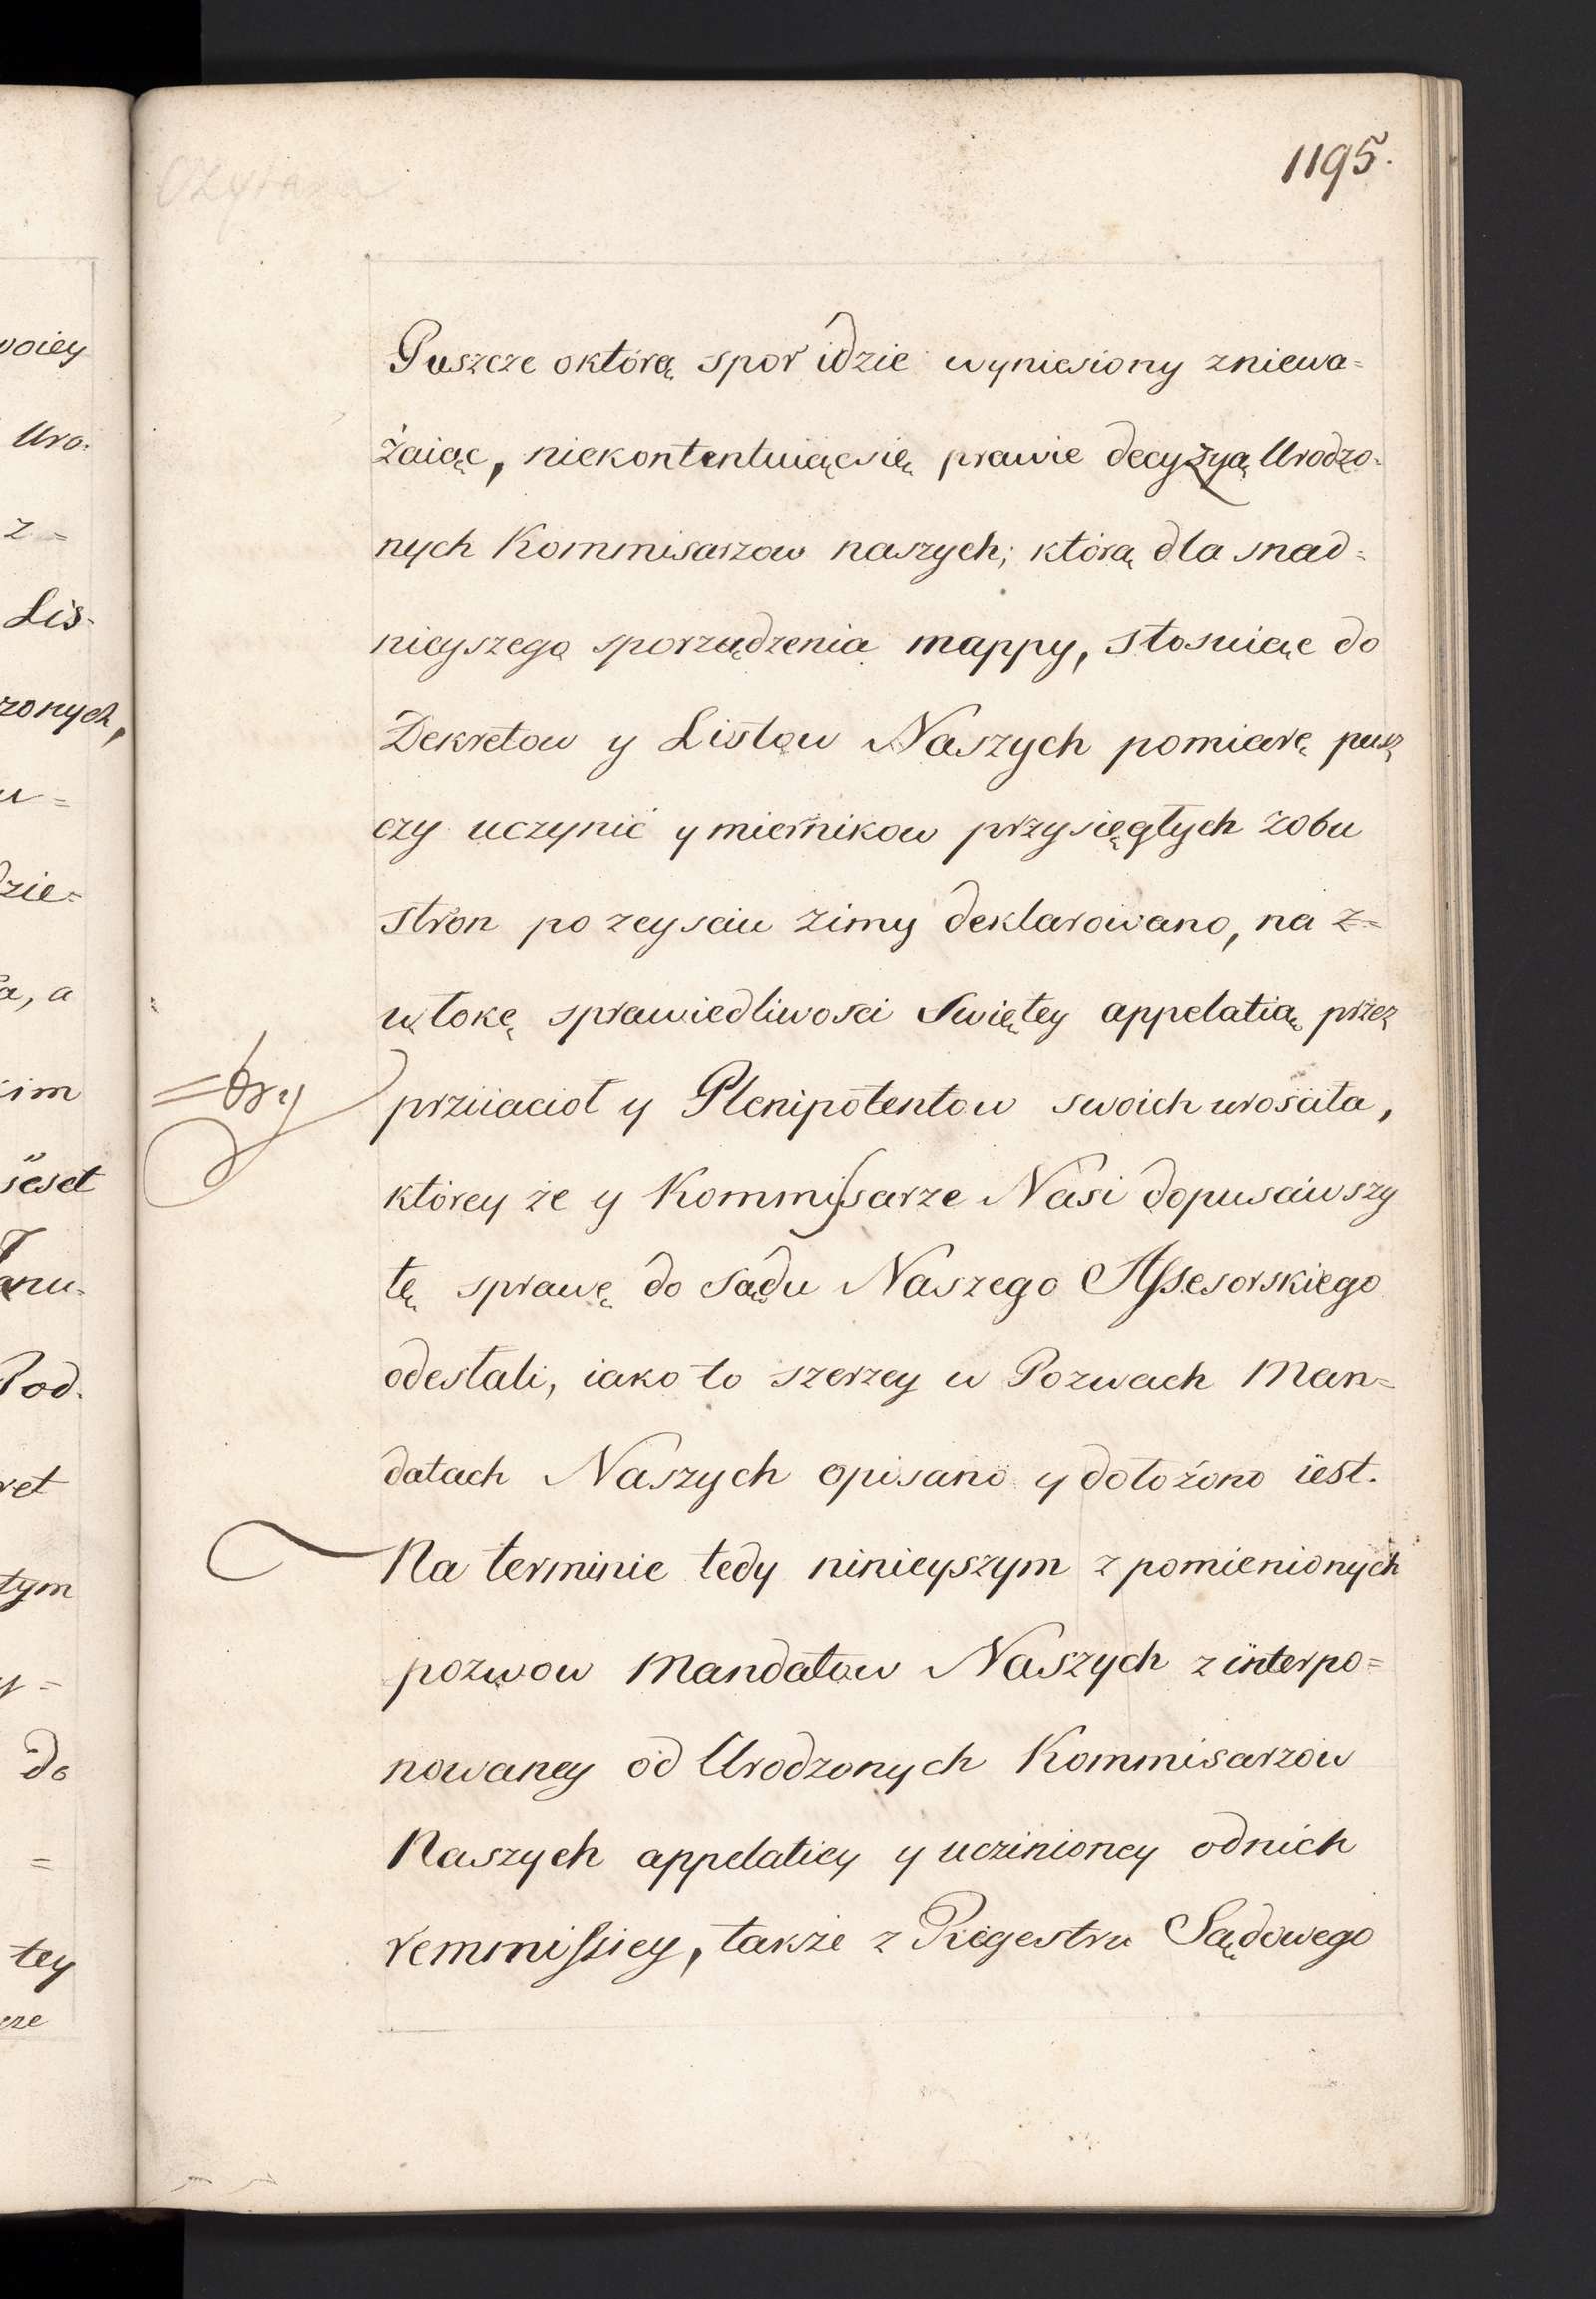 1195.
Puszcze októrą spor idzie wyniesiony zniewa=
żaiąc, niekontentuiącsię prawie decyzyą Urodzo=
nych Kommisarzow naszych; którą dla snad=
nieyszego sporządzenia mappy, stosuiąc do
Dekretow y Listow Naszych pomiarę pusz
czy uczynić y miernikow przysięgłych zobu
stron po zeysciu zimy deklarowano, na z=
włokę sprawiedliwosci Swiętey appelatią przez
przyiaciół y Plenipotentow swoich urosciła,
którey że y Kommissarze Nasi dopusciwszy
tę sprawę do Sądu Naszego Assesorskiego
odesłali, iako to szerzey w Pozwach Man=
datach Naszych opisano y dołożono iest.
Na terminie tedy ninieyszym z pomienionych
pozwow Mandatow Naszych z interpo=
nowaney od Urodzonych Kommisarzow
Naszych appelatiey y uczinioney odnich
remmissiey, także z Regestru Sądowego
woiey
Uro=
z =
Lis=
zonych,
dzie=
a, a
kim
Pod=
ret
tym
do
=
tey